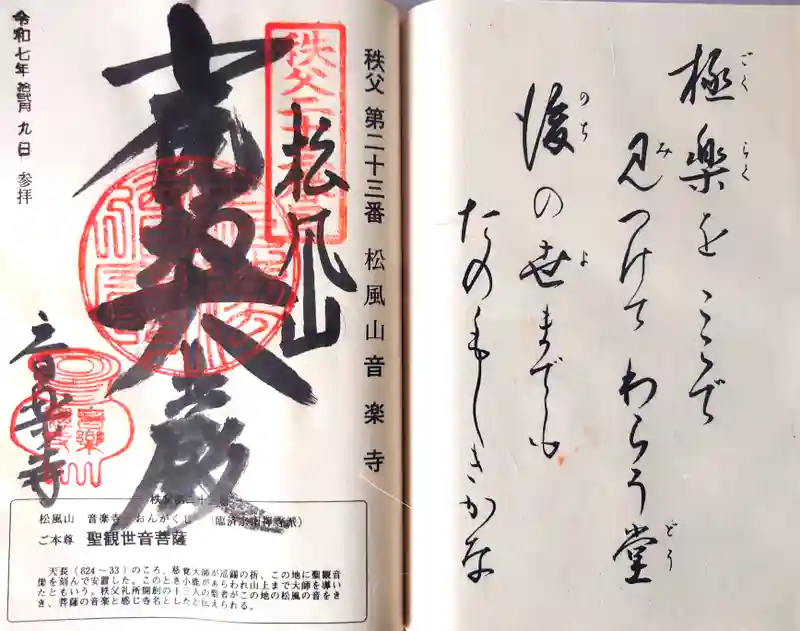 極楽をここで
見つけてわらう堂
後の世までも
たのもしきかな
ごく
らく
み
どう
のち
よ
秩父 第二十三番 松風山音楽寺
松風山
令和七年 拾弐月 九日 参拝
音楽寺
松風山 音楽寺 おんがくじ
ご本尊 聖観世音菩薩
天長(824～33)のころ、慈覚大師が巡錫の折、この地に聖観音
像を刻んで安置した。このとき小鹿があらわれ山上まで大師を導い
たともいう。秩父札所開創の十三人の聖者がこの地の松風の音をき
き、菩薩の音楽と感じ寺名としたと伝えられる。